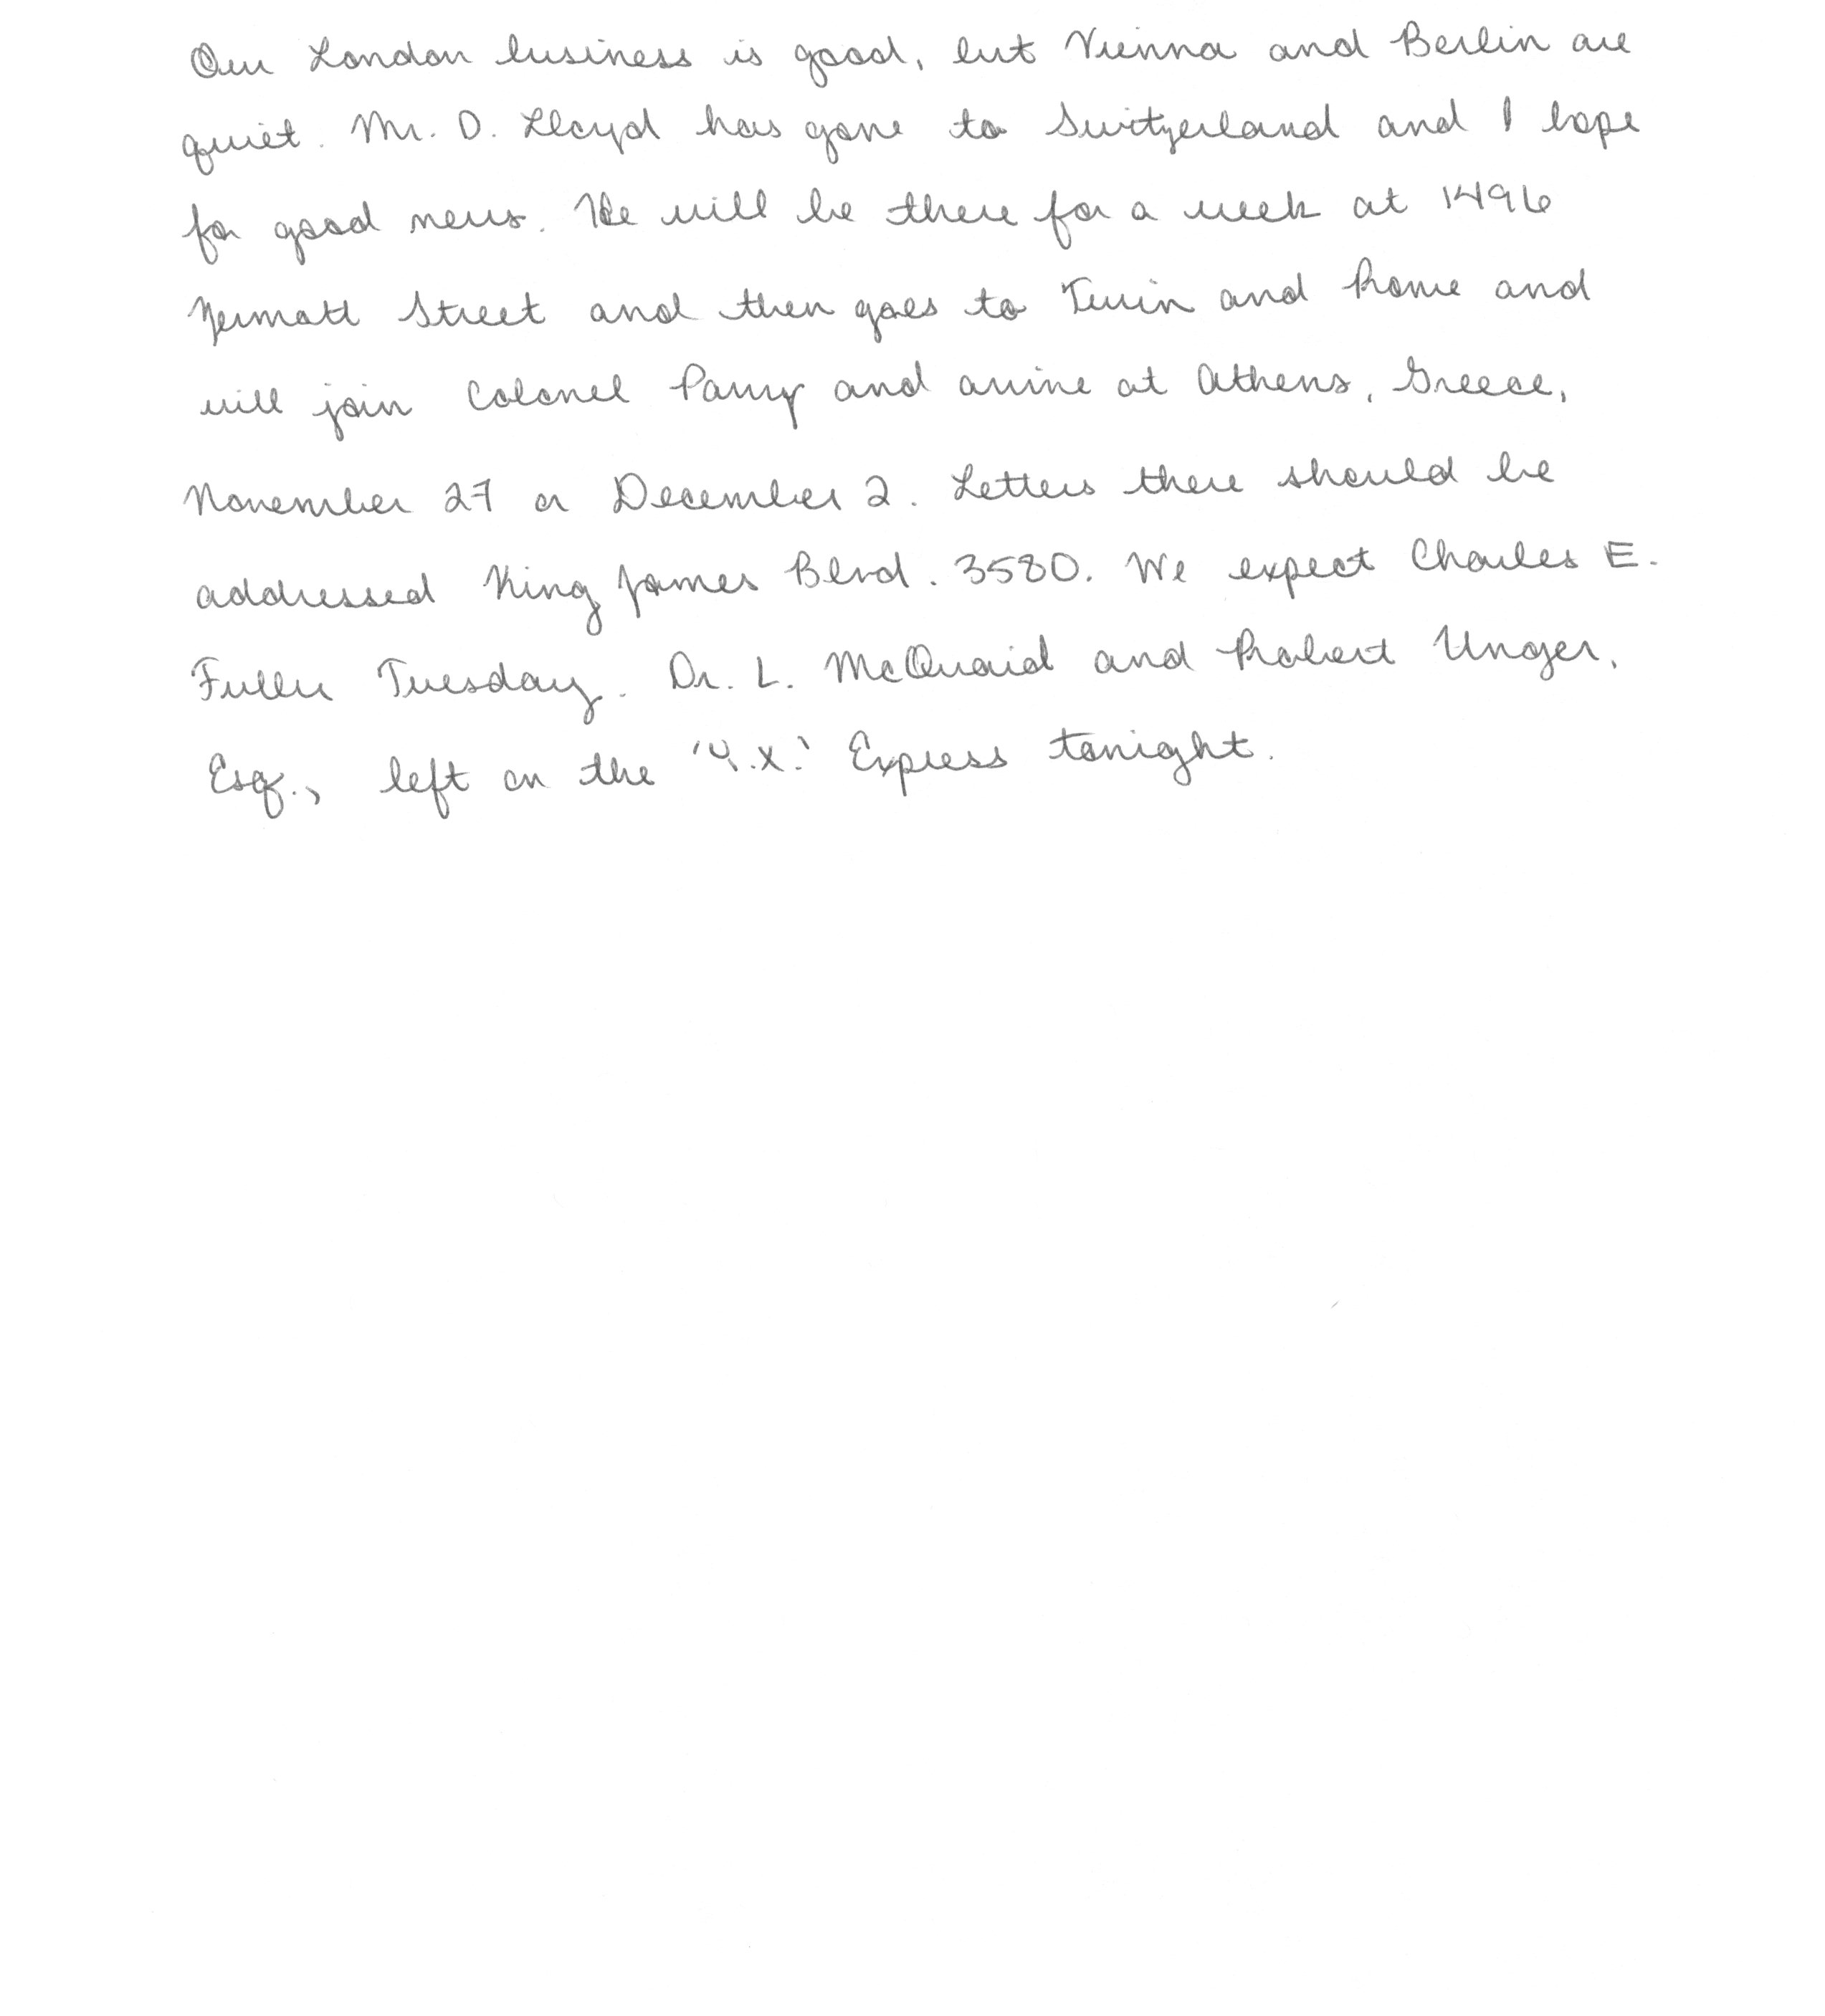 Our London business is good, but Vienna and Berlin are
quiet. Mr. D. Lloyd has gone to Switzerland and I hope
for good news. He will be there for a week at 1496
Zermatt Street and then goes to Turin and Rome and
will join Colonel Parry and arrive at Athens, Greece,
November 27 or December 2. Letters there should be
addressed King James Blvd. 3580. We expect Charles E.
Fuller Tuesday. Dr. L. McQuaid and Robert Unger,
Esq., left on the 'Y.X.' Express tonight.